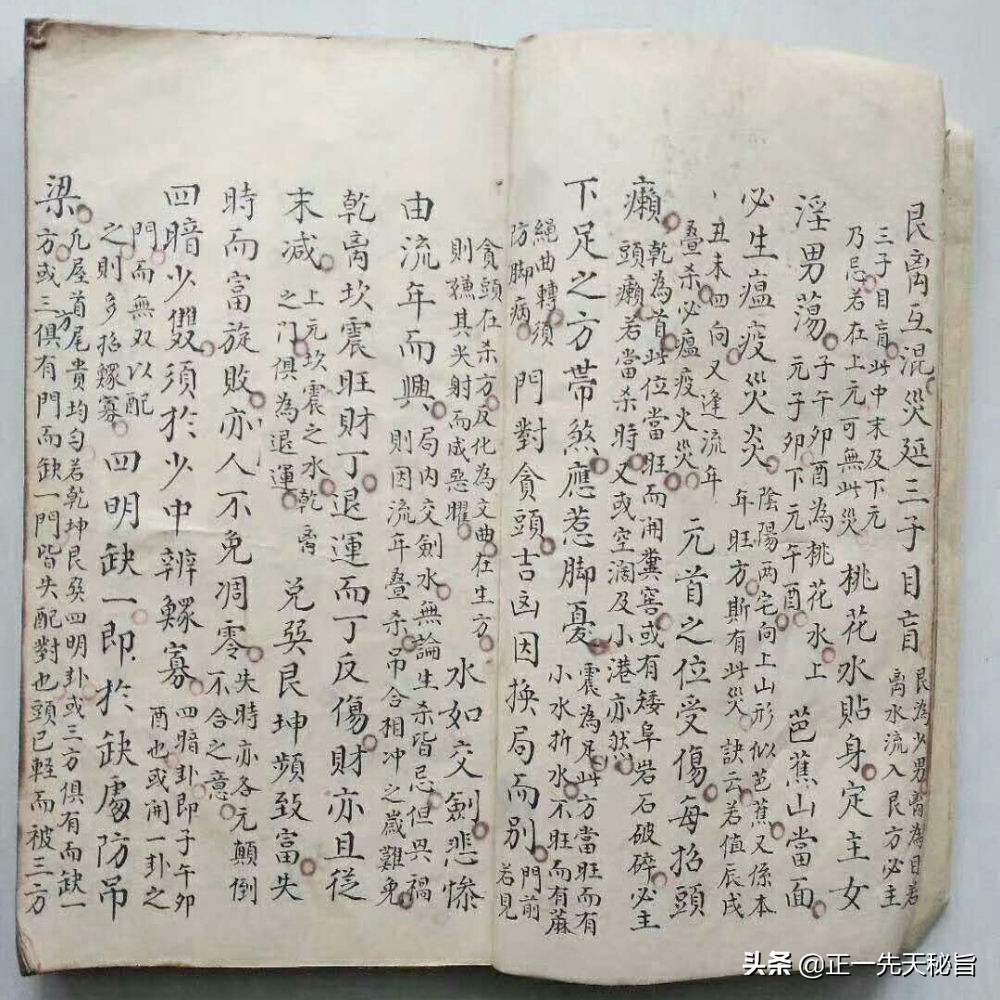 艮离互混災延三子目盲
艮為少男离為目若
离水流入艮方必主
三子目盲此中末及下元
乃忌若在上元可無此災
桃花水貼身定主女
淫男蕩
子午卯酉為桃花水上
元子卯下元午酉
芭蕉山當面
必生瘟疫災炎
陰陽两宅向上山形似芭蕉又係本
年旺方斯有此災訣云若值辰戌
丑未四向又逢流年
叠杀必瘟疫火災
元首之位受傷每招頭
癩
乾為首此位當旺而開糞窖或有矮阜岩石破碎必主
頭癩若當杀時又或空濶及小港亦然
下足之方帶煞應惹脚憂
震為足此方當旺而有
小水折水不旺而有蔴
繩曲轉須
防脚病
門對貪頭吉凶因换局而别
門前
若見
貪頭在杀方反化為文曲在生方
則其夹射而成恶曜
水如交劍悲惨
由流年而興
局内交劍水無論生杀皆忌但其禍
則因流年叠杀吊合相冲之歲難免
乾离坎震旺財丁退運而丁反傷財亦且從
末减
上元坎震之水乾离
之门俱為退運
兑巽艮坤頻致富失
時而富旋敗亦人不免凋零
失時亦各元顛倒
不合之意
四暗少雙須於少中辨鰥寡
四暗卦即子午卯
酉也或開一卦之
門而無双以配
之則多招鰥寡
四明缺一即於缺處防吊
梁
凡屋首尾貴均匀若乾坤艮巽四明卦或三方俱有而缺一
方或三方俱有門而缺一門皆失配對也頭已輕而被三方
头条 @正一先天秘旨